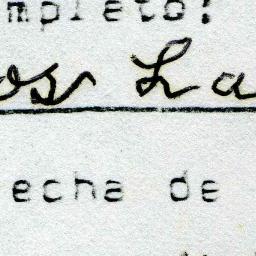 mpleto:
os La
echa de